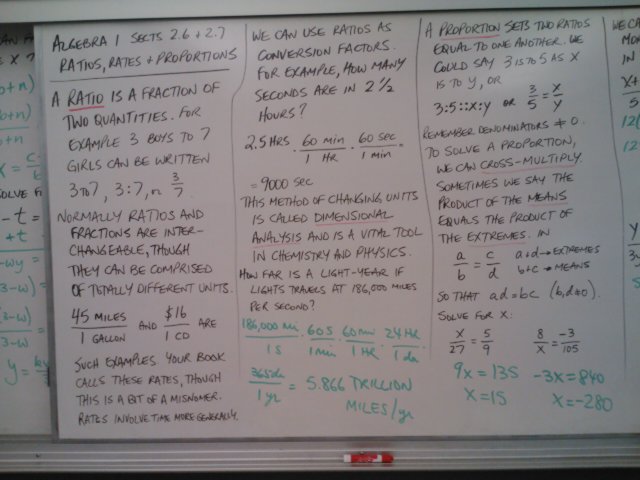 ALGEBRA 1 SECTS 2.6 + 2.7
RATIOS, RATES + PROPORTIONS
A RATIO IS A FRACTION OF
TWO QUANTITIES. FOR
EXAMPLE 3 BOYS TO 7
GIRLS CAN BE WRITTEN
3 TO 7, 3:7, OR 3/7.
NORMALLY RATIOS AND
FRACTIONS ARE INTER-
CHANGEABLE, THOUGH
THEY CAN BE COMPRISED
OF TOTALLY DIFFERENT UNITS.
45 MILES / 1 GALLON AND $16 / 1 CD ARE
SUCH EXAMPLES. YOUR BOOK
CALLS THESE RATES, THOUGH
THIS IS A BIT OF A MISNOMER.
RATES INVOLVE TIME MORE GENERALLY.
WE CAN USE RATIOS AS
CONVERSION FACTORS.
FOR EXAMPLE, HOW MANY
SECONDS ARE IN 2 1/2
HOURS?
2.5 HRS · 60 min / 1 HR · 60 sec / 1 min =
= 9000 SEC
THIS METHOD OF CHANGING UNITS
IS CALLED DIMENSIONAL
ANALYSIS AND IS A VITAL TOOL
IN CHEMISTRY AND PHYSICS.
HOW FAR IS A LIGHT-YEAR IF
LIGHTS TRAVELS AT 186,000 MILES
PER SECOND?
186,000 mi / 1 S · 60 S / 1 min · 60 min / 1 HR · 24 HR / 1 da
365 da / 1 yr = 5.866 TRILLION
MILES/yr
A PROPORTION SETS TWO RATIOS
EQUAL TO ONE ANOTHER. WE
COULD SAY 3 IS TO 5 AS X
IS TO Y, OR
3:5::X:Y OR 3/5 = X/Y
REMEMBER DENOMINATORS ≠ 0.
TO SOLVE A PROPORTION,
WE CAN CROSS-MULTIPLY.
SOMETIMES WE SAY THE
PRODUCT OF THE MEANS
EQUALS THE PRODUCT OF
THE EXTREMES. IN
a/b = c/d a+d → EXTREMES
b+c → MEANS
SO THAT ad = bc (b,d ≠ 0).
SOLVE FOR X:
X/27 = 5/9 8/X = -3/105
9X = 135 -3X = 840
X = 15 X = -280